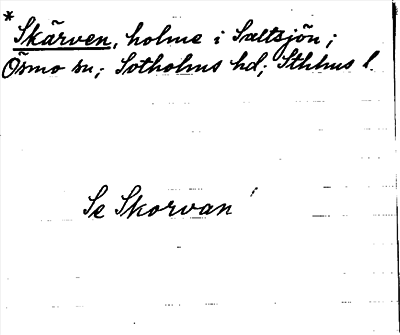 *Skärven, holme i Saltsjön;
Ösmo sn; Sotholms hd; Sthlms l.
Se Skorvan